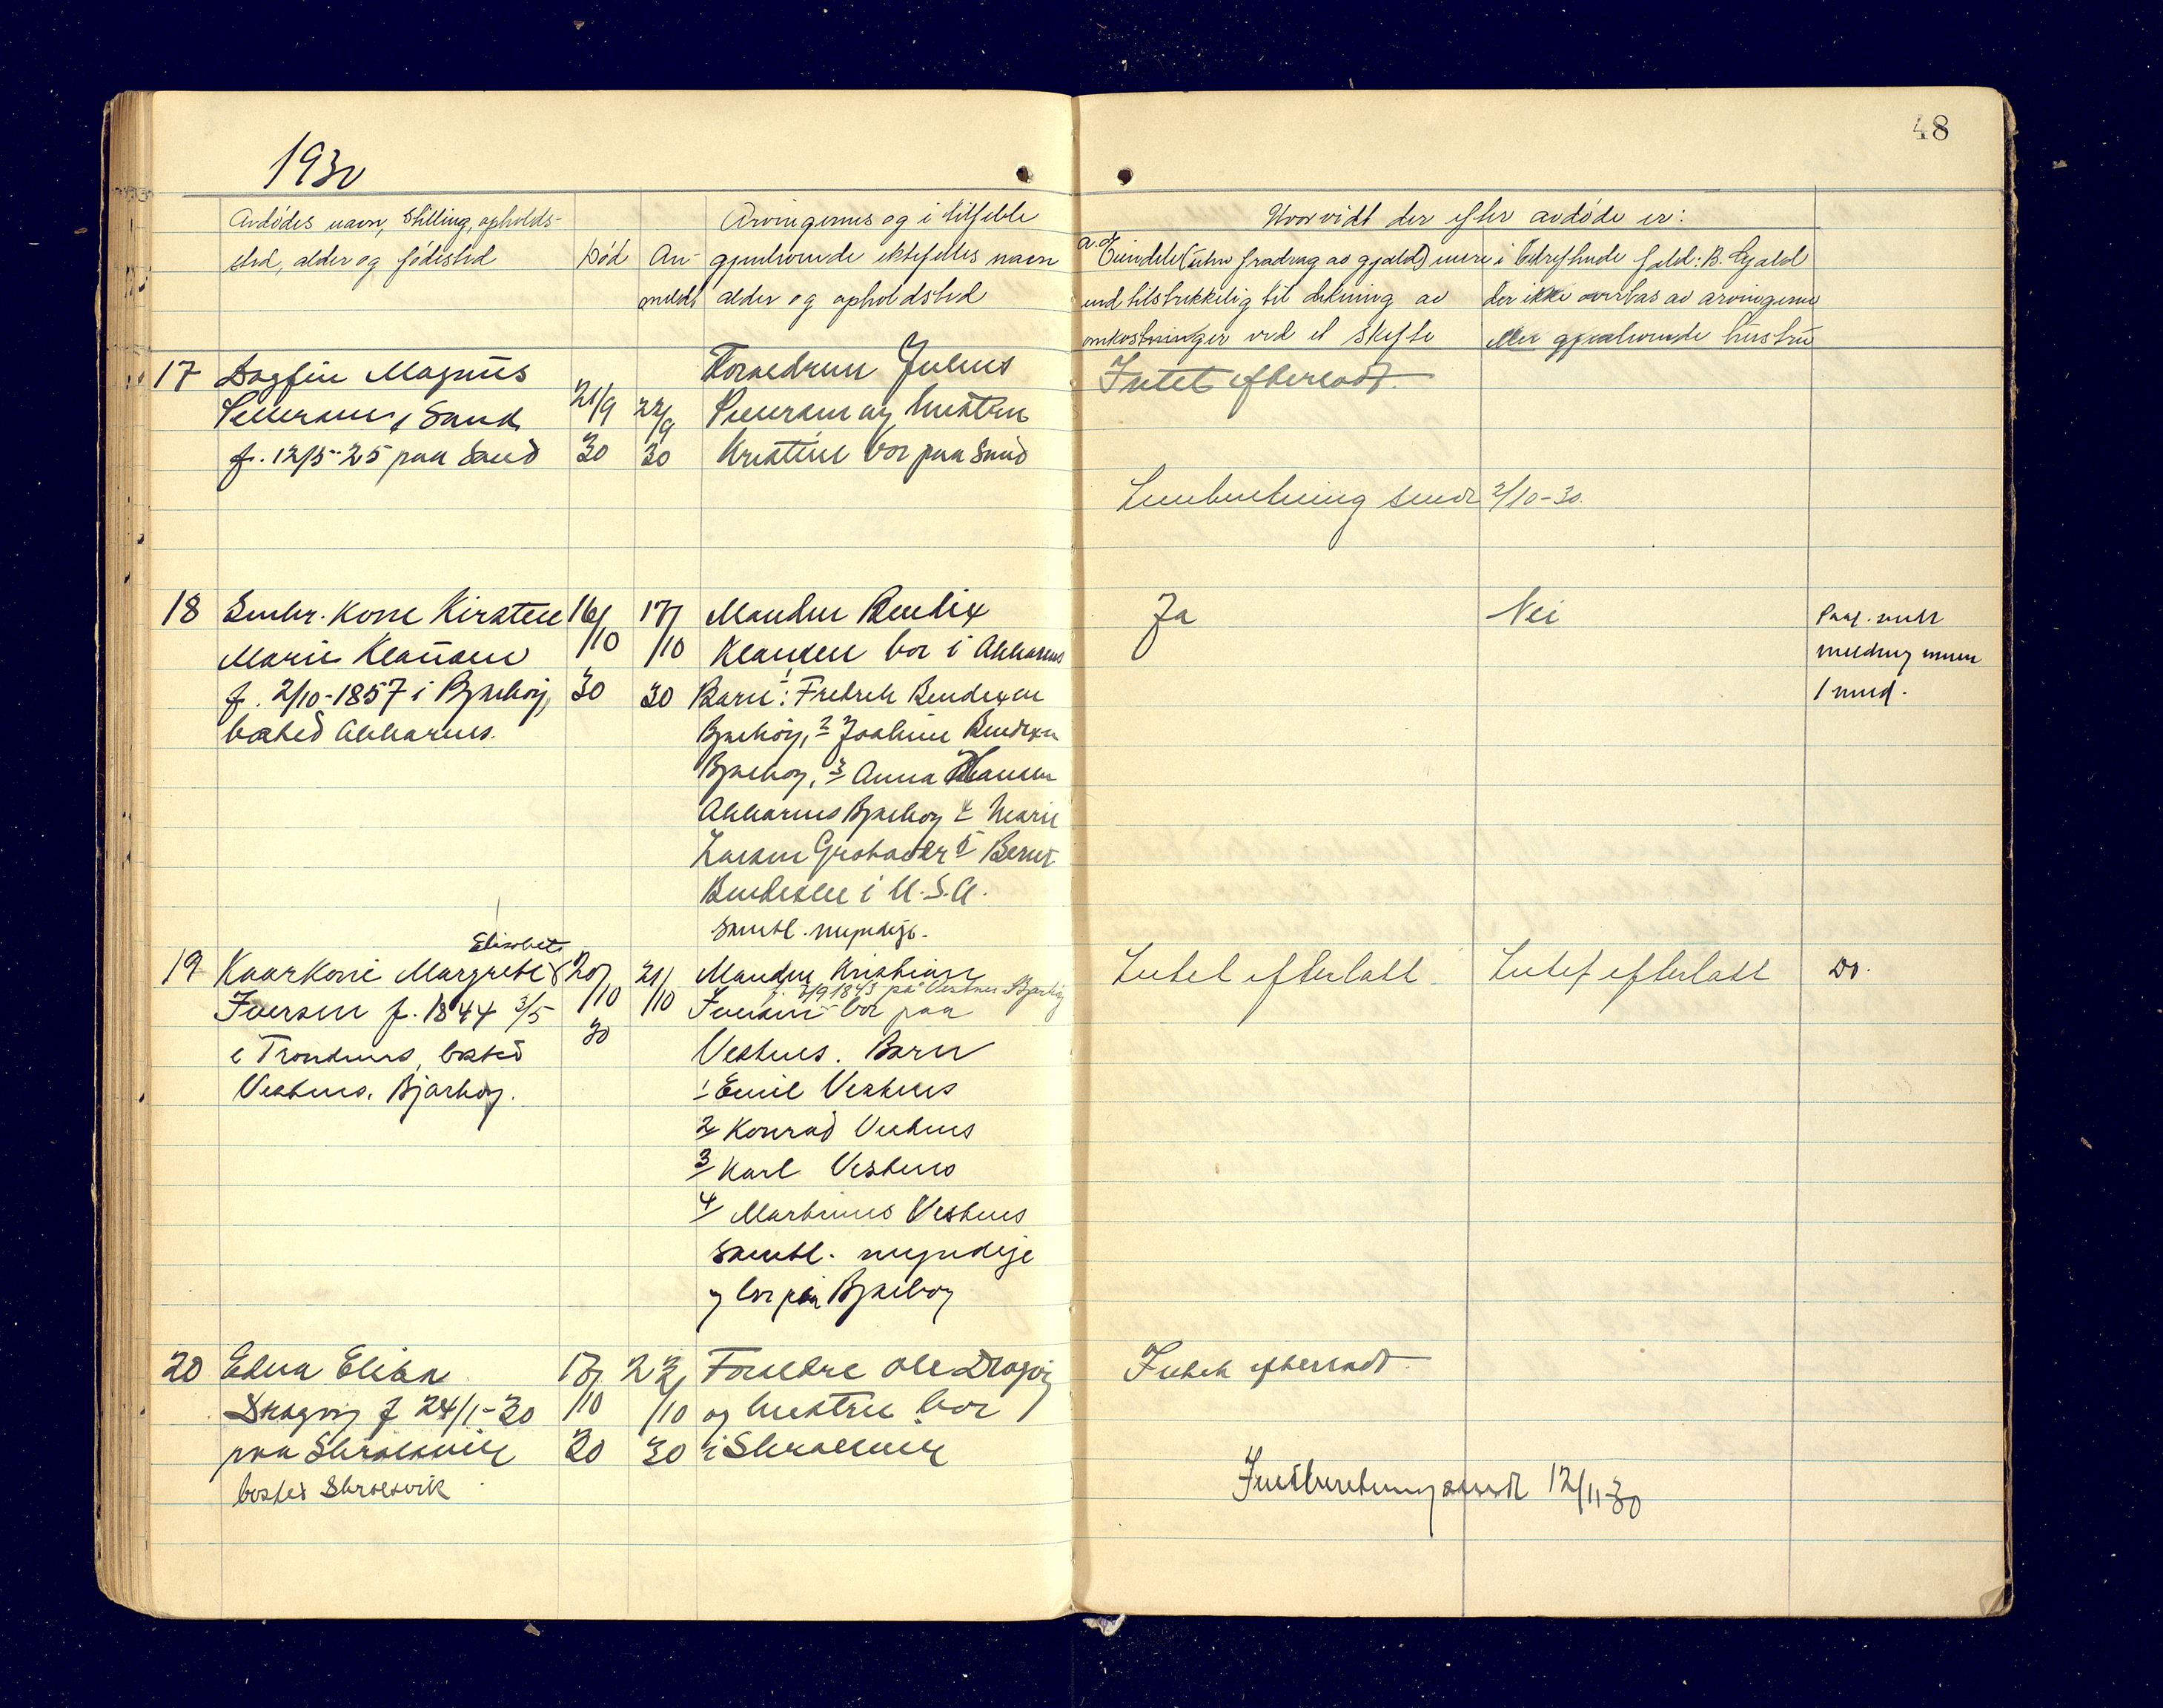 48
1930
Avdødes navn, Stilling, opholds-
sted, alder og fødested
Død
An-
meldt
Arvingernes og i tilfelde
gjenlevende ektefelles navn
alder og opholdsted
Hvorvidt der efter avdøde er:
a. Eiendele (uten fradrag av gjæld) mere
end tilstrekkelig til dekning av
omkostninger ved et skifte
i betreffende fald: B. Gjæld
der ikke overtas av arvingerne
eller gjenlevende hustru
17 Dagfin Magnus
Sand
f. 12/5-25 paa Sand
21/9
30
22/9
30
Foraeldrene Julius
og hustru
Kristine bor paa Sand
Intet efterladt.
Innberetning sendt 2/10-30.
18 Kone Kirsten
Marie Klausen
f. 2/10-1857 i Bjarkøy,
bosted Akkarnes.
16/
/10
30
17/
/10
30
Manden Bendix
Klausen bor i Akkarnes
Barn: 1 Fredrik Bendixen
Bjarkøy, 2 Joakim Bendixen
Bjarkøy, 3 Anna Hansen
Akkarnes Bjarkøy 4 Marie
Larsen 5 Bernt
Bendixen i U.S.A.
Samtl. myndige.
Ja
Nei
melding innen
1 mnd.
Elisabet
19 Kaarkone Margrete
Iversen f. 1844 3/5
i Trondenes, bosted
Vestnes, Bjarkøy.
20/
/10
30
21/
/10
Manden Kristian
f. 7/9 1843 på Vestnes Bjarkøy
Iversen bor paa
Vestnes. Barn
1 Emil Vestnes
2 Konrad Vestnes
3 Karl Vestnes
4 Martinus Vestnes
Samtl. myndige
og bor paa Bjarkøy
Intet efterlatt
Intet efterlatt
Do.
20 Edna Elisa
Dragøy f 24/1-30
paa Skrolsvik
bosted Skrolsvik
17/
/10
30
22/
/10
30
Foreldre Ole Dragøy
og hustru bor
i Skrolsvik
Intet efterladt.
Innberetning sendt 12/11-30